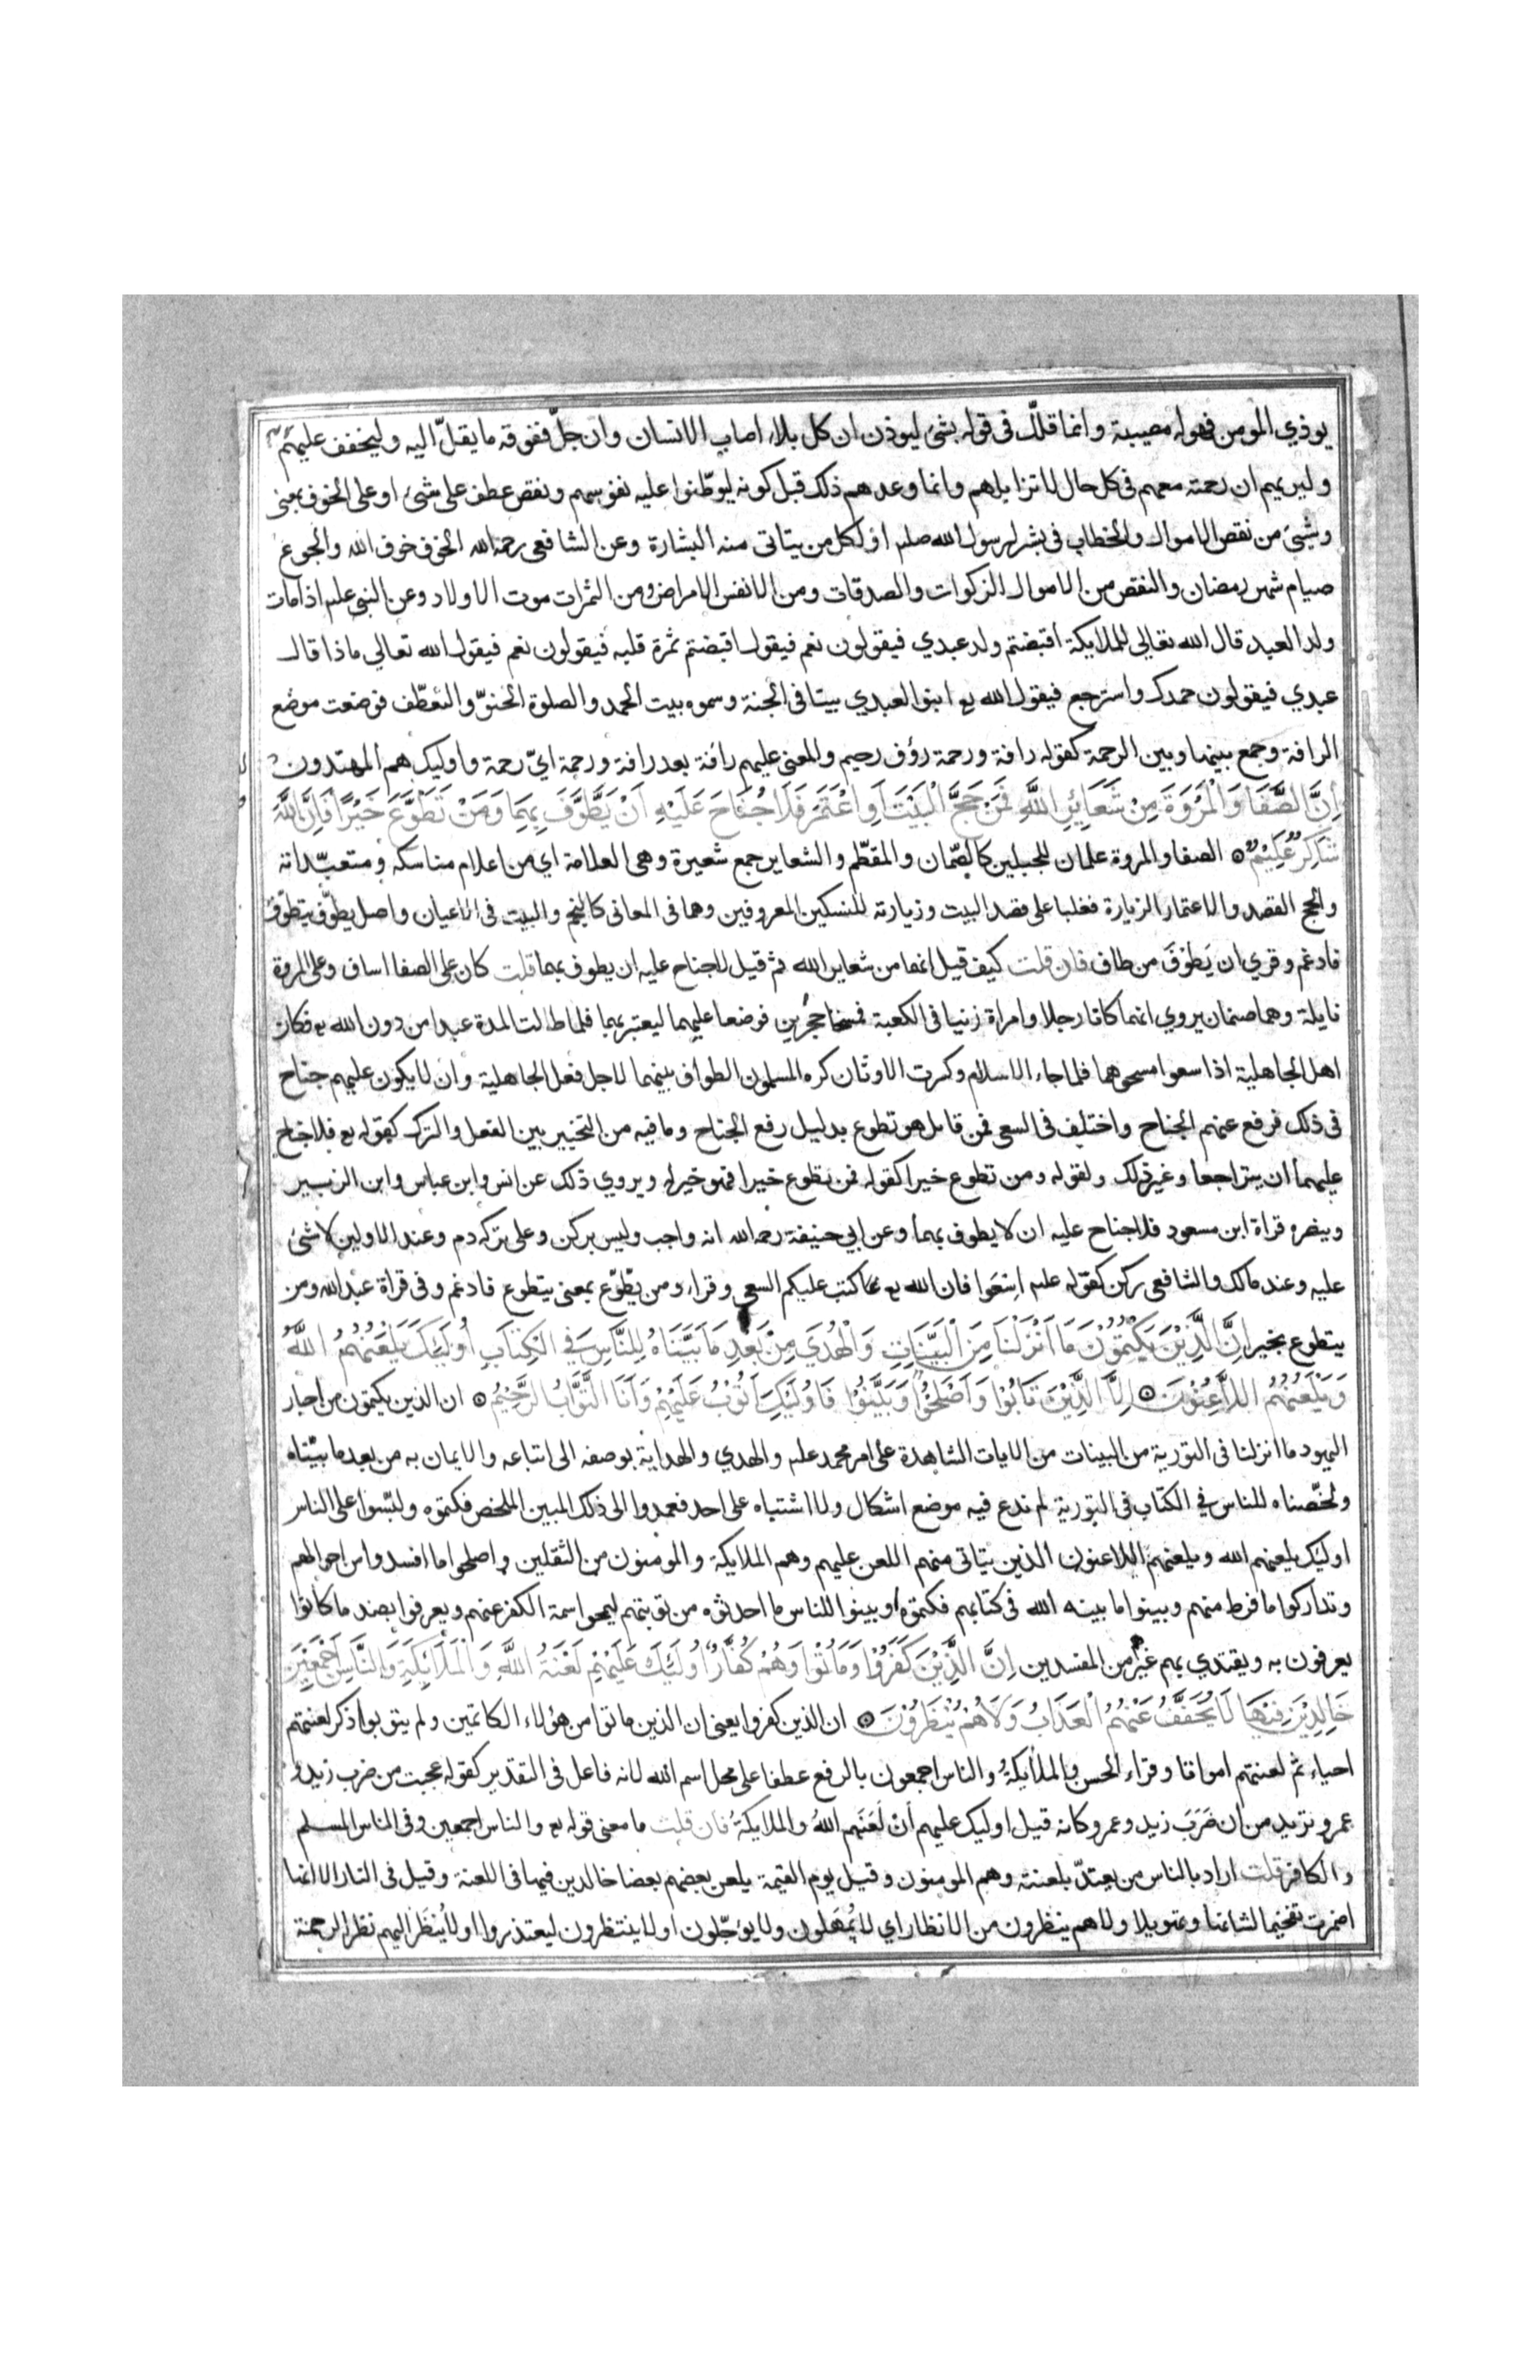 يوذي المومن فهو له مصيبة وانما قلل في قوله بشئ ليوذن ان كل بلاء اصاب الانسان وان جلّ ففوقه ما يقلّ اليه وليخفف عليهم
وليريهم ان رحمته معهم في كل حال لا تزايلهم وانما وعدهم ذلك قبل كونه ليوطّنوا عليه نفوسهم ونقص عطف على شئ او على الخوف بمعنى
وشئ من نقص الاموال والخطاب في بشر لرسول الله صلم او لكل من يتاتى منه البشارة وعن الشافعي رحمه الله الخوف خوف الله والجوع
صيام شهر رمضان والنقص من الاموال الزكوات والصدقات ومن الانفس الامراض ومن الثمرات موت الاولاد وعن النبي علم اذا مات
ولد العبد قال الله تعالي للملايكة أقبضتم ولد عبدي فيقولون نعم فيقول اقبضتم ثمرة قلبه فيقولون نعم فيقول الله تعالي ماذا قال
عبدي فيقولون حمدك واسترجع فيقول الله تع ابنوا لعبدي بيتا في الجنة وسموه بيت الحمد والصلوة الحنوّ والتعطّف فوضعت موضع
الرافة وجمع بينها وبين الرحمة كقوله رافة ورحمة رؤف رحيم والمعنى عليهم رافة بعد رافة ورحمة ايّ رحمة واوليك هم المهتدون
اِنَّ الصَّفَا وَالْمَرْوَةَ مِنْ شَعَايِرِ اللَّهِ فَمَنْ حَجَّ الْبَيْتَ اَوِ اعْتَمَرَ فَلَا جُنَاحَ عَلَيْهِ اَنْ يَطَّوَّفَ بِهِمَا وَمَنْ تَطَوَّعَ خَيْرًا فَاِنَّ اللَّهَ
شَاكِرٌ عَلِيْمٌ ۞ الصفا والمروة علمان للجبلين كالصّمان والمقطّم والشعاير جمع شعيرة وهي العلامة اي من اعلام مناسكه ومتعبّداته
والحج القصد والاعتمار الزيارة فغلبا على قصد البيت وزيارته للنسكين المعروفين وهما في المعاني كالنجم والبيت في الاعيان واصل يطوّف يتطوّف
فادغم وقري ان يَطُوْفَ من طاف فان قلت كيف قيل انهما من شعاير الله ثم قيل لا جناح عليه ان يطوف بهما قلت كان على الصفا اساف وعلى المروة
نايلة وهما صنمان يروي انهما كانا رجلا وامراة زنيا في الكعبة فمسخا حجرين فوضعا عليهما ليعتبر بهما فلما طالت المدة عبدا من دون الله تع فكان
اهل الجاهلية اذا سعوا مسحوهما فلما جاء الاسلام وكسرت الاوثان كره المسلمون الطواف بينهما لاجل فعل الجاهلية وان لا يكون عليهم جناح
في ذلك فرفع عنهم الجناح واختلف في السعي فمن قايل هو تطوع بدليل رفع الجناح وما فيه من التخيير بين الفعل والترك كقوله تع فلا جناح
عليهما ان يتراجعا وغير ذلك ولقوله ومن تطوع خيرا كقوله فمن تطوع خيرا فهو خير له ويروي ذلك عن انس وابن عباس وابن الزبير
وينصره قراة ابن مسعود فلا جناح عليه ان لا يطوف بهما وعن ابي حنيفة رحمه الله انه واجب وليس بركن وعلى تركه دم وعند الاولين لا شئ
عليه وعند مالك والشافعي ركن كقوله علم اسعوا فان الله تع كتب عليكم السعي وقراء ومن يطّوّع بمعنى يتطوع فادغم وفي قراة عبد الله ومن
يتطوع بخير اِنَّ الَّذِيْنَ يَكْتُمُوْنَ مَا اَنْزَلْنَا مِنَ الْبَيِّنَاتِ وَالْهُدَي مِنْ بَعْدِ مَا بَيَّنَّاهُ لِلنَّاسِ فِي الْكِتَابِ اُولَيِكَ يَلْعَنُهُمُ اللَّهُ
وَيَلْعَنُهُمُ اللاَّعِنُوْنَ ۞ اِلاَّ الَّذِيْنَ تَابُوْا وَاَصْلَحُوْا وَبَيَّنُوْا فَاُولَيِكَ اَتُوْبُ عَلَيْهِمْ وَاَنَا التَّوَّابُ الرَّحِيْمُ ۞ ان الذين يكتمون من احبار
اليهود ما انزلنا في التورية من البينات من الايات الشاهدة على امر محمد علم والهدي والهداية بوصفه الى اتباعه والايمان به من بعد ما بيّنّاه
ولخّصناه للناس في الكتاب في التورية لم ندع فيه موضع اشكال ولا اشتباه على احد فعمدوا الى ذلك المبين الملخص فكتموه ولبّسوا على الناس
اوليك يلعنهم الله ويلعنهم اللاعنون الذين يتاتى منهم اللعن عليهم وهم الملايكة والمومنون من الثقلين واصلحوا ما افسدوا من احوالهم
وتداركوا ما فرط منهم وبينوا ما بينه الله في كتابهم فكتموه او بينوا للناس ما احدثوه من توبتهم ليمحوا سمة الكفر عنهم ويعرفوا بضد ما كانوا
يعرفون به ويقتدي بهم غيرهم من المفسدين اِنَّ الَّذِيْنَ كَفَرُوْا وَمَاتُوْا وَهُمْ كُفَّارٌ اُولَيِكَ عَلَيْهِمْ لَعْنَةُ اللَّهِ وَالْمَلَايِكَةِ وَالنَّاسِ اَجْمَعِيْنَ
خَالِدِيْنَ فِيْهَا لَا يُخَفَّفُ عَنْهُمُ الْعَذَابُ وَلَا هُمْ يُنْظَرُوْنَ ۞ ان الذين كفروا يعني ان الذين ماتوا من هؤلاء الكاتمين ولم يتوبوا ذكر لعنتهم
احياء ثم لعنتهم امواتا وقراء الحسن والملايكةُ والناس اجمعون بالرفع عطفا على محل اسم الله لانه فاعل في التقدير كقوله عجبت من ضرب زيد و
عمرو تريد من ان ضَرَبَ زيد وعمرو كانه قيل اوليك عليهم أنْ لَعَنَهم اللهُ والملايكةُ فان قلت ما معنى قوله تع والناس اجمعين وفي الناس المسلم
والكافر قلت اراد بالناس من يعتدّ بلعنته وهم المومنون وقيل يوم القيمة يلعن بعضهم بعضا خالدين فيها في اللعنة وقيل في النار الا انها
اضمرت تفخيما لشانها وتهويلا ولا هم ينظرون من الانظار اي لا يُمْهَلون ولا يؤجّلون او لا ينتظرون ليعتذروا او لا يُنظَر اليهم نظر الرحمة